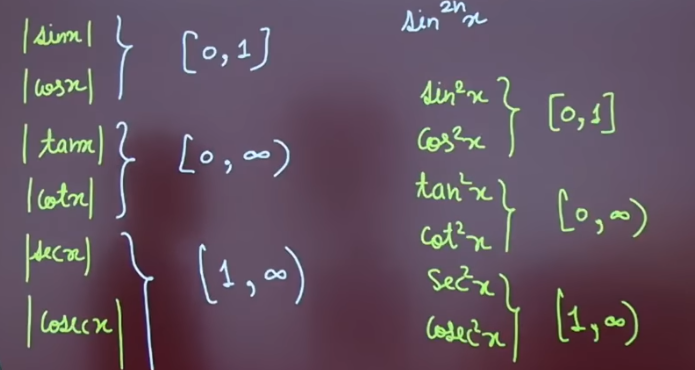 |sinx|
|cosx| } [0, 1]
|tanx|
|cotx| } [0, ∞)
|secx|
|cosecx| } [1, ∞)
sin²ⁿx
sin²x
cos²x } [0, 1]
tan²x
cot²x } [0, ∞)
sec²x
cosec²x } [1, ∞)